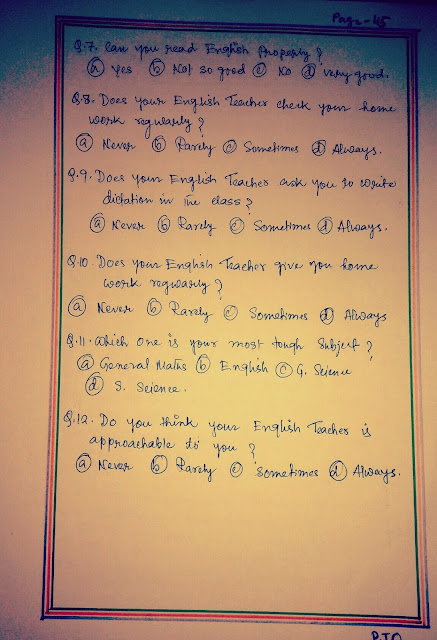 Page-45
Q.7. Can you read English Properly ?
(a) Yes (b) Not so good (c) No (d) very good.
Q.8. Does your English Teacher check your home
work regularly ?
(a) Never (b) Rarely (c) Sometimes (d) Always.
Q.9. Does your English Teacher ask you to write
dictation in the class ?
(a) Never (b) Rarely (c) Sometimes (d) Always.
Q.10. Does your English Teacher give you home
work regularly ?
(a) Never (b) Rarely (c) Sometimes (d) Always
Q.11. Which one is your most tough Subject ?
(a) General Maths (b) English (c) G. Science
(d) S. Science.
Q.12. Do you think your English Teacher is
approachable to you ?
(a) Never (b) Rarely (c) Sometimes (d) Always.
P.T.O